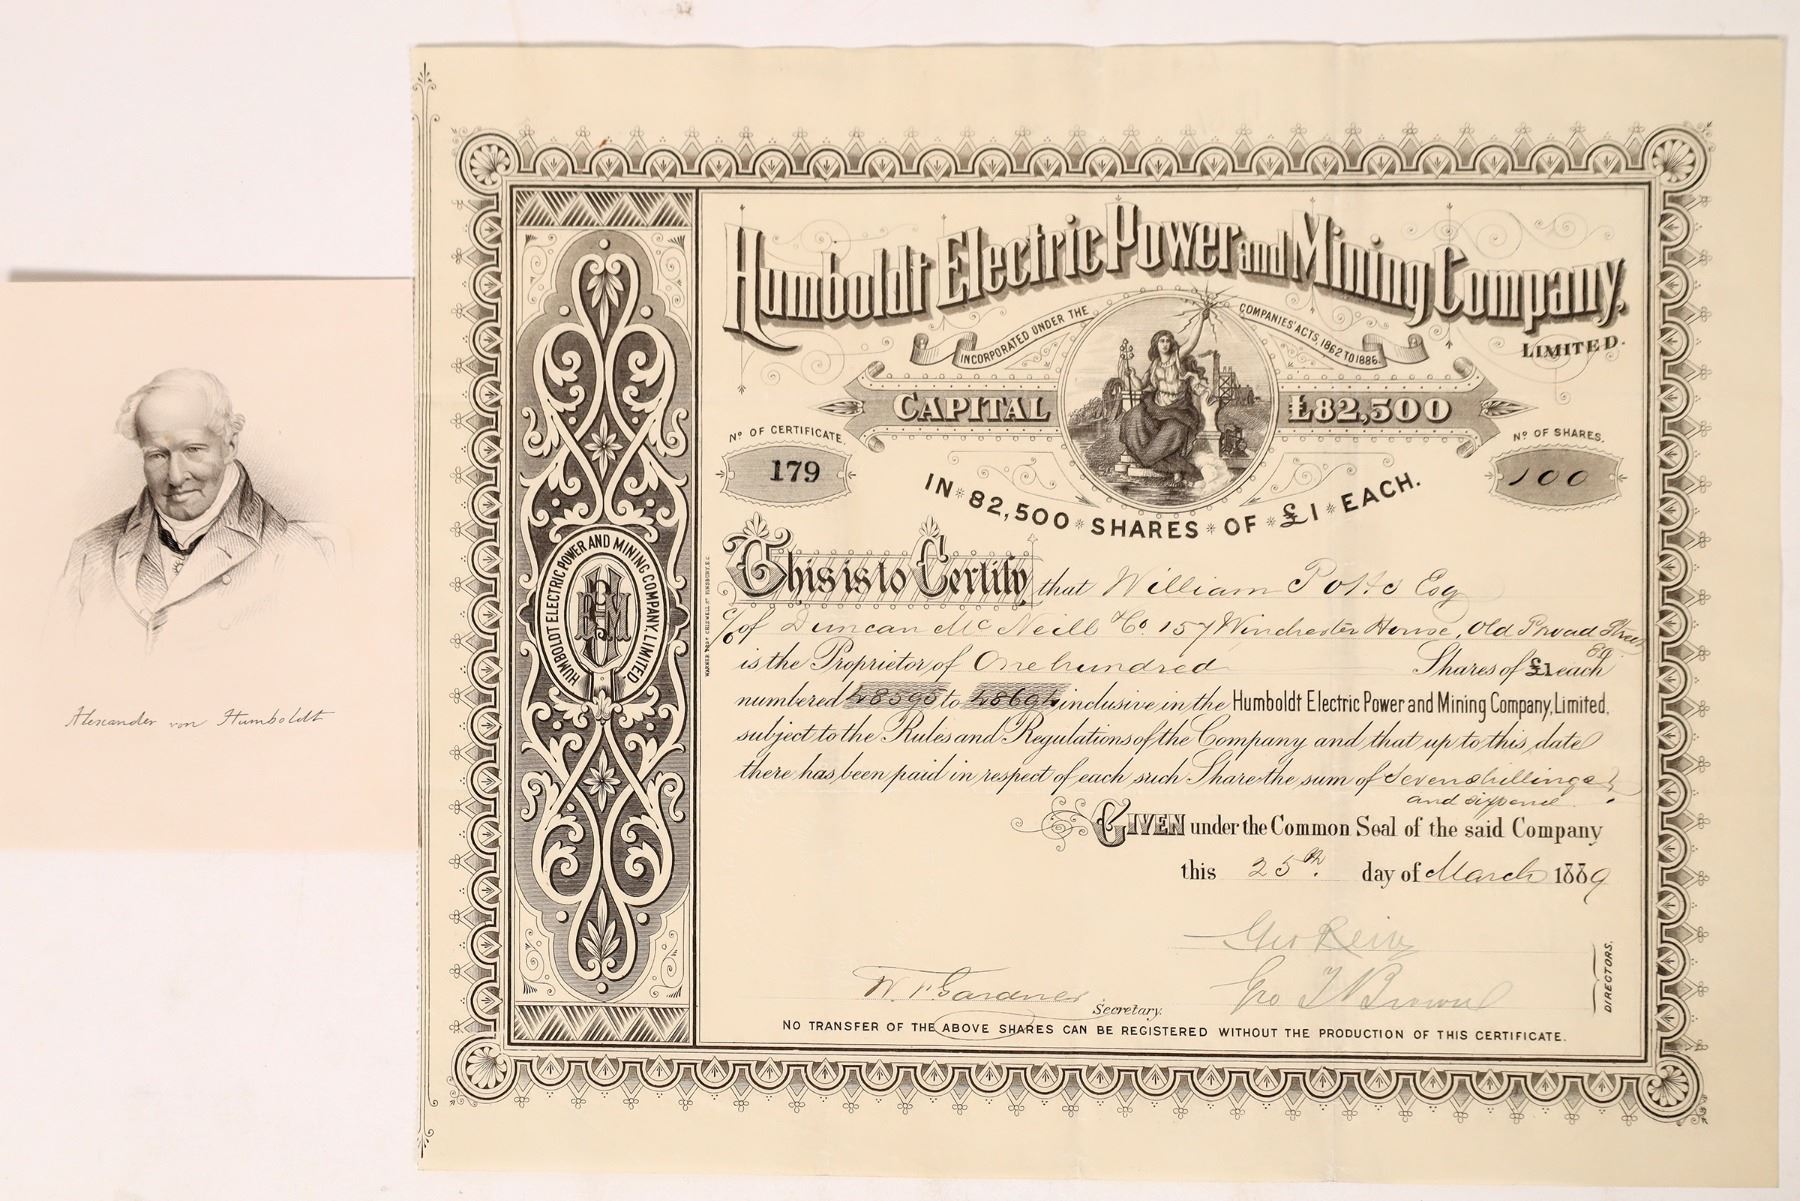 Alexander von Humboldt
Humboldt Electric Power and Mining Company,
LIMITED.
INCORPORATED UNDER THE COMPANIES' ACTS, 1862 TO 1886.
CAPITAL £82,500
Nº OF CERTIFICATE.
179
Nº OF SHARES.
100
IN 82,500 SHARES OF £1 EACH.
This is to Certify that William Potts Esq
c/o of Duncan Mc Neill & Co. 157 Winchester House, Old Broad Street
is the Proprietor of One hundred Shares of £1 each
numbered 48595 to 48694 inclusive in the Humboldt Electric Power and Mining Company, Limited,
subject to the Rules and Regulations of the Company and that up to this date
there has been paid in respect of each such Share the sum of Seven shillings
and sixpence.
GIVEN under the Common Seal of the said Company
this 25th. day of March 1889
Geo
Geo T Browne
DIRECTORS.
W. F. Gardner
Secretary.
NO TRANSFER OF THE ABOVE SHARES CAN BE REGISTERED WITHOUT THE PRODUCTION OF THIS CERTIFICATE.
HUMBOLDT ELECTRIC POWER AND MINING COMPANY, LIMITED.